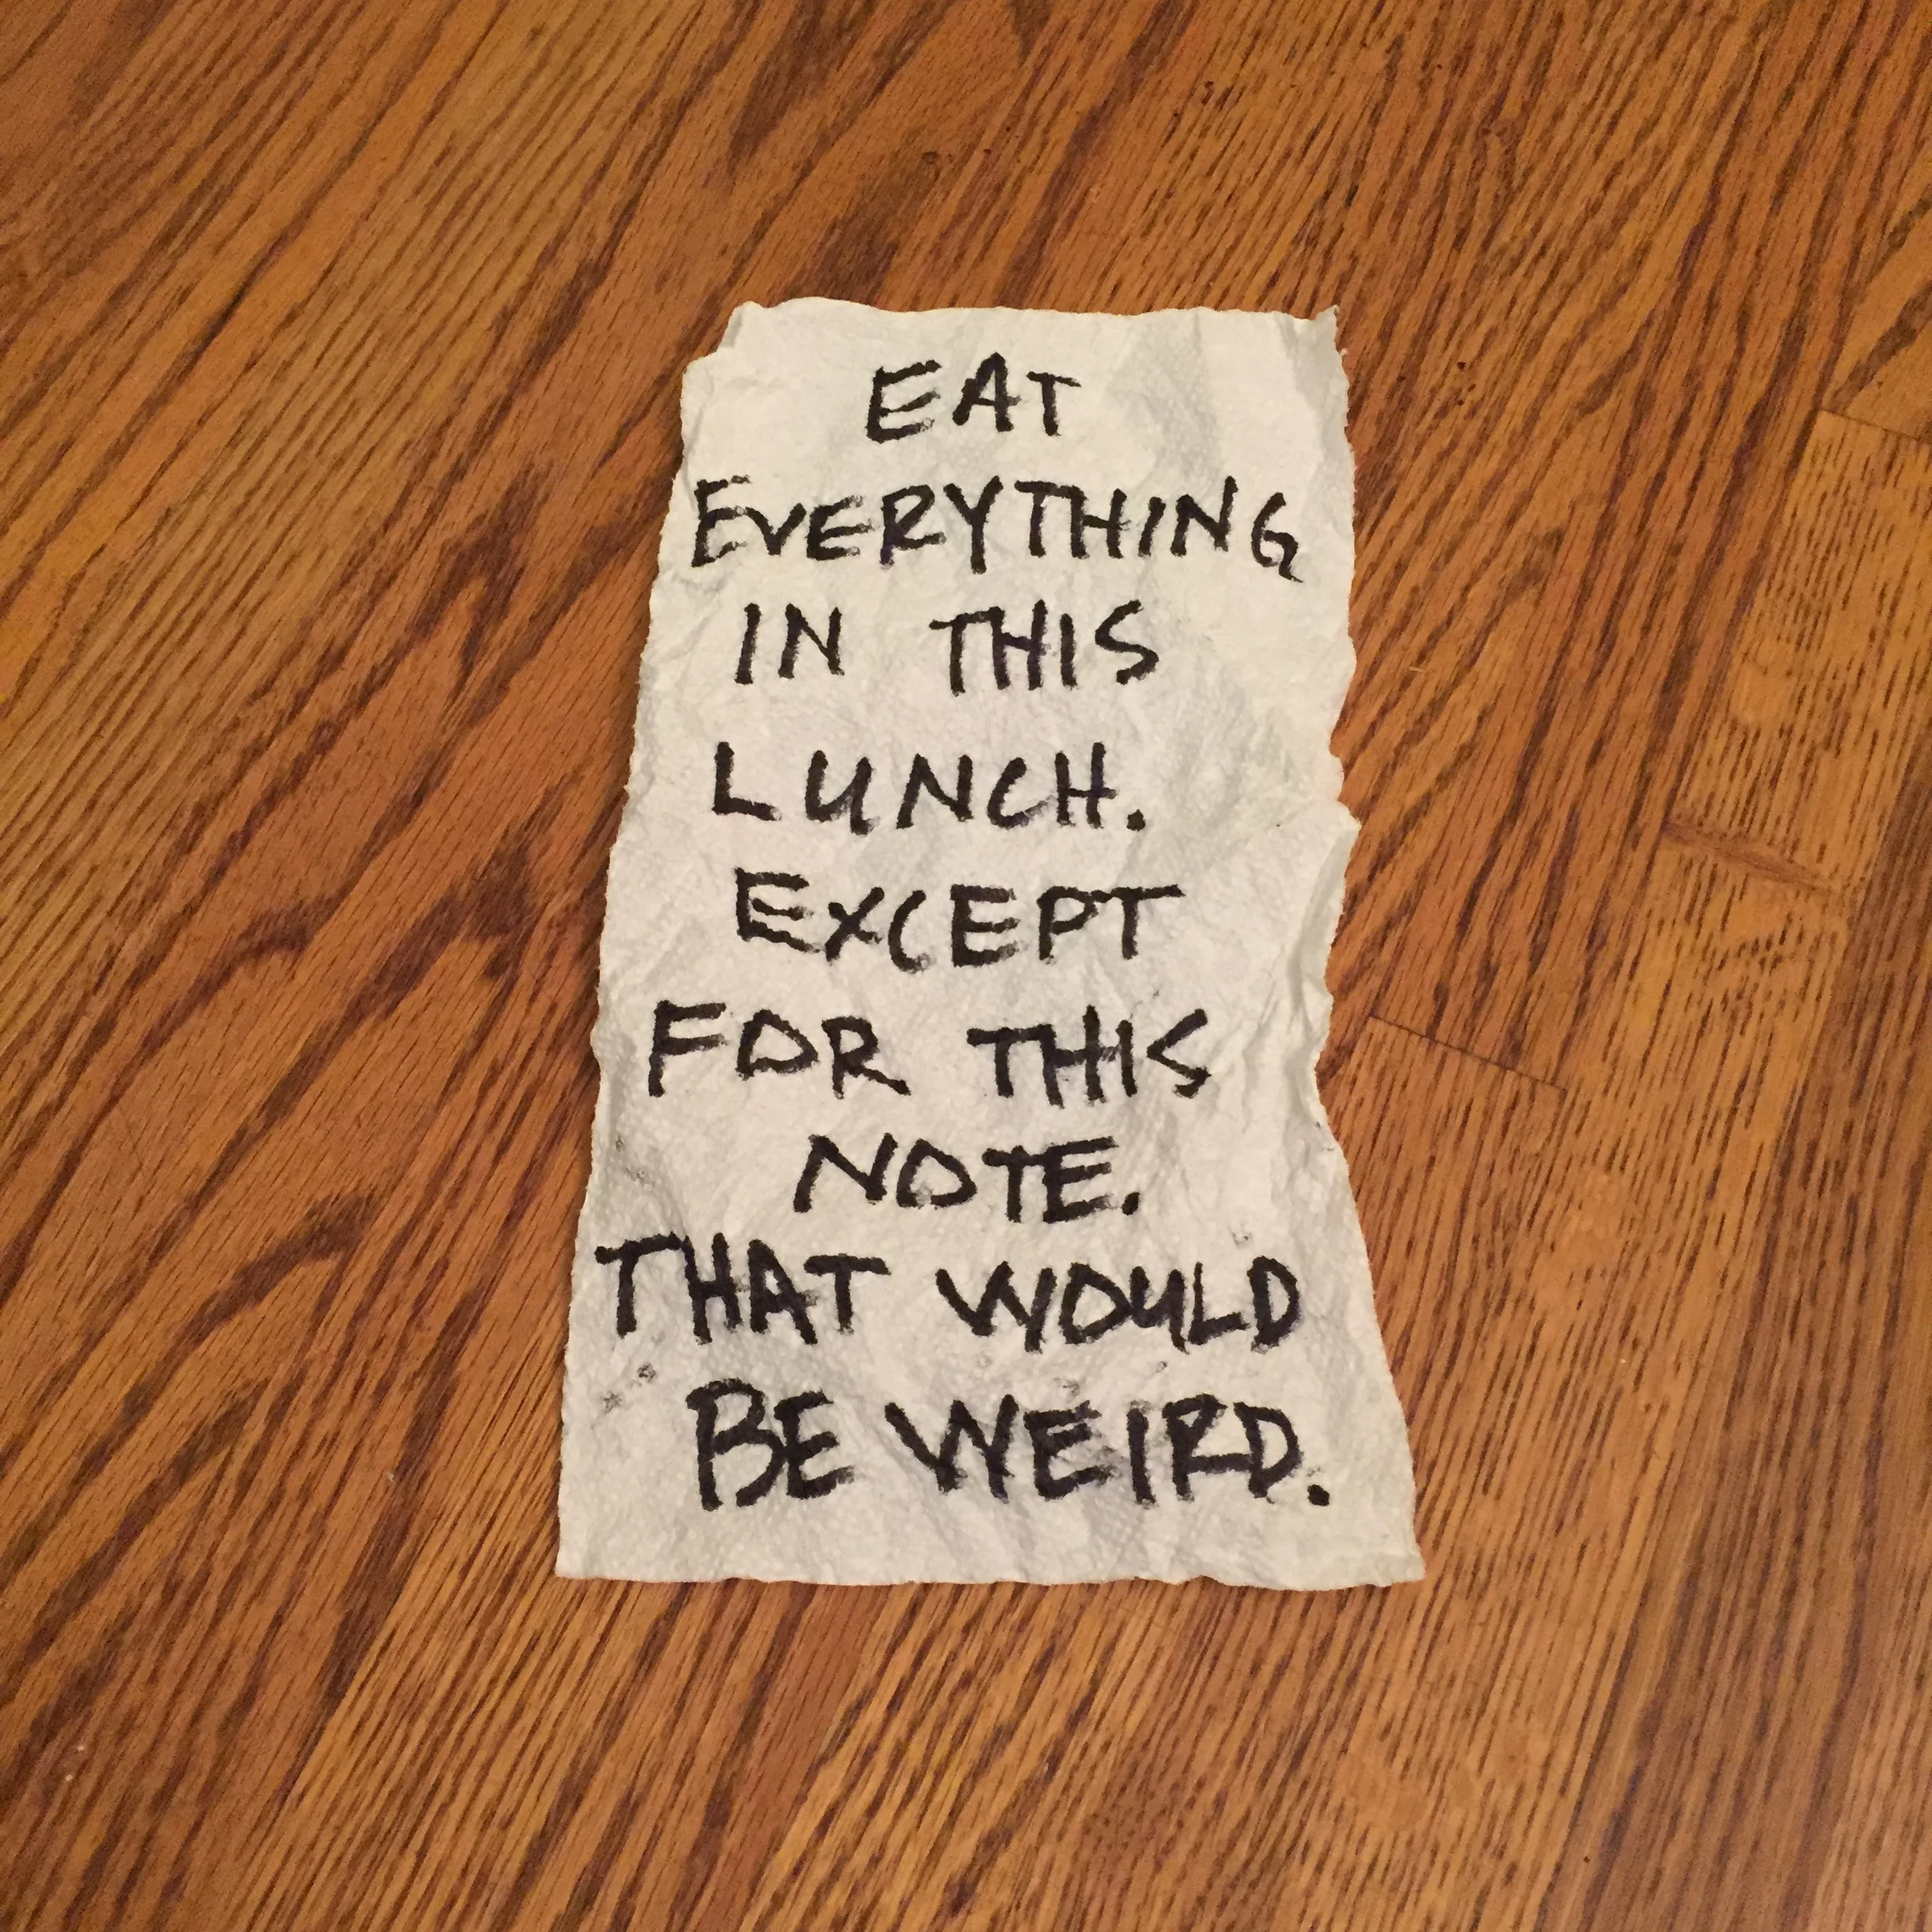 EAT
EVERYTHING
IN THIS
LUNCH.
EXCEPT
FOR THIS
NOTE.
THAT WOULD
BE WEIRD.